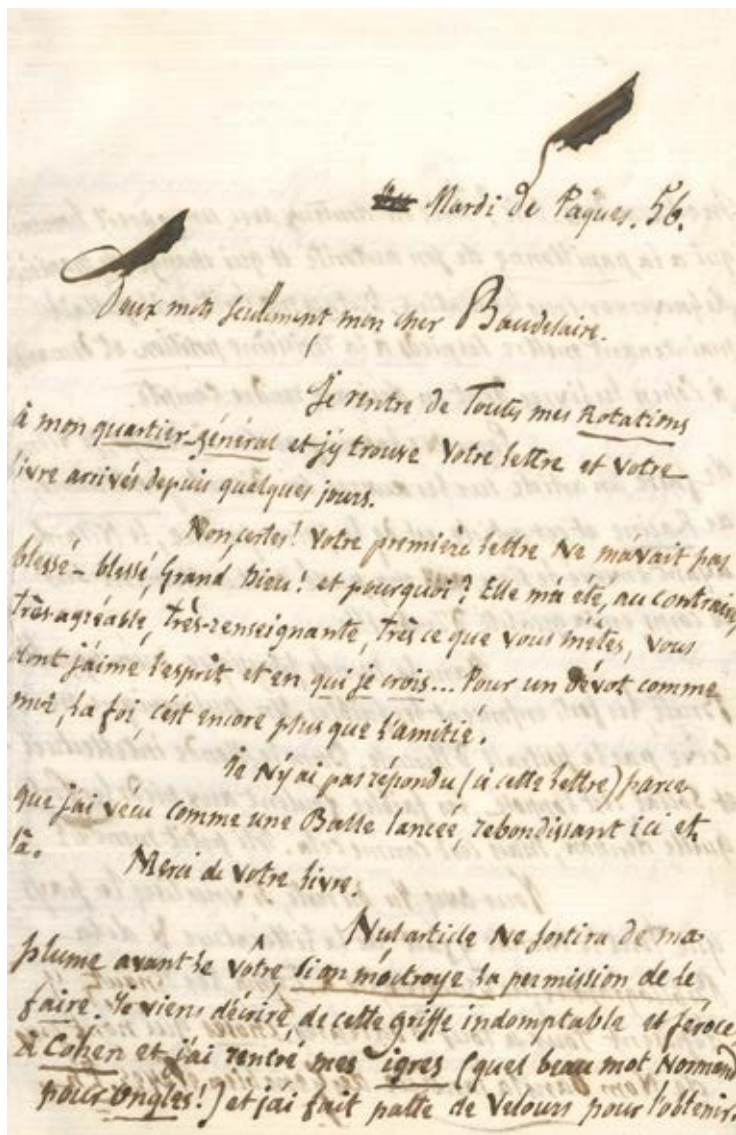 Mardi de Pâques. 56.
Deux mots seulement mon cher Baudelaire.
Je rentre de Toutes mes Rotations
à mon quartier-général et j'y trouve Votre lettre et votre
livre arrivés depuis quelques jours.
Non, certes! Votre première lettre Ne m'avait pas
blessé – blessé, Grand Dieu! et pourquoi? Elle m'a été, au contraire,
Très-agréable, Très-renseignante, Très ce que vous m'êtes, vous
dont j'aime l'esprit et en qui je crois... Pour un dévot comme
moi, la foi, c'est encore plus que l'amitié.
Je N'y ai pas répondu (à cette lettre) parce
que j'ai vécu comme une Balle lancée, rebondissant ici et
là.
Merci de votre livre.
Nul article Ne sortira de ma
plume avant le Vôtre, si on m'octroye la permission de le
faire. Je viens d'écrire, de cette griffe indomptable et féroce,
à Cohen et j'ai rentré mes igres (quel beau mot Normand
pour ongles!) et j'ai fait patte de Velours pour l'obtenir.